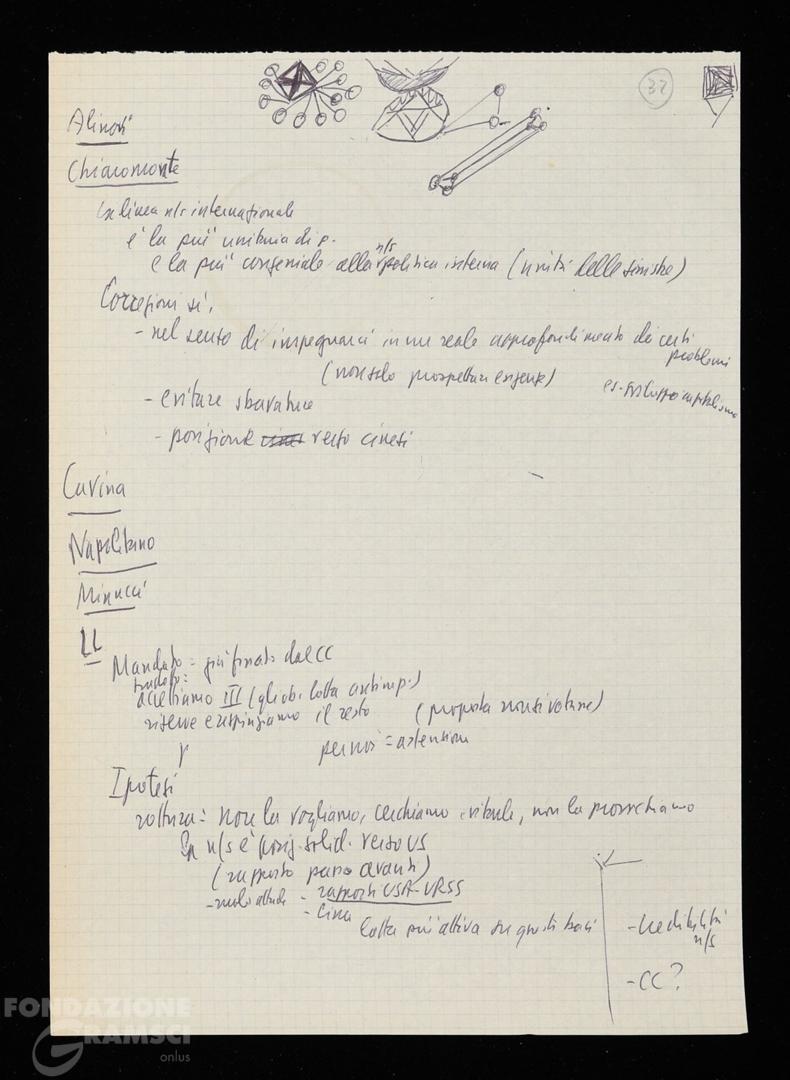 37
Alinovi
Chiaromonte
La linea n/s internazionale
è la più unitaria di p.
n/s
e la più congeniale alla politica interna (unità delle sinistre)
Correzioni sì,
- nel senso di impegnarci in un reale approfondimento di certi
problemi
(non solo prospettare esigenze)
es. sviluppo capitalismo
- evitare sbavature
- posizione verso cinesi
Cavina
Napolitano
Minucci
LL
Mandato = già fissato dal CC
accettiamo III (gli ob. lotta antimp.)
riserve e respingiamo il resto (proposta non si votano)
per noi = astensione
Ipotesi
rottura: non la vogliamo, cerchiamo evitarla, non la provochiamo
n/s è solid. verso US
(rapporto passo avanti)
- rapporti USA-URSS
- Cina
lotta più attiva su questi basi
- credibilità
n/s
- CC?
FONDAZIONE
GRAMSCI
onlus